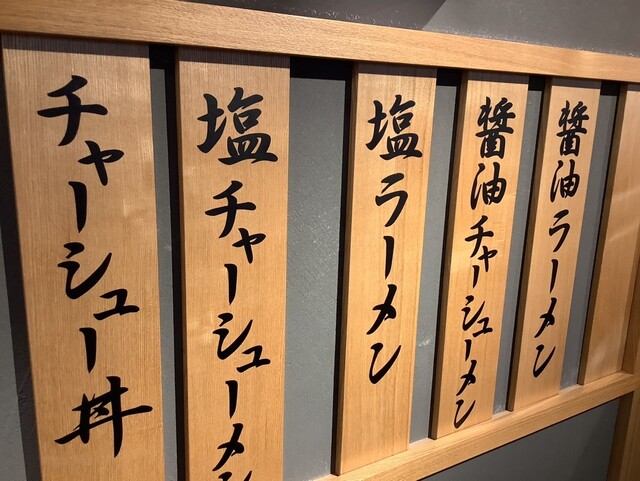 醤油ラーメン
醤油チャーシューメン
塩ラーメン
塩チャーシューメン
チャーシュー丼